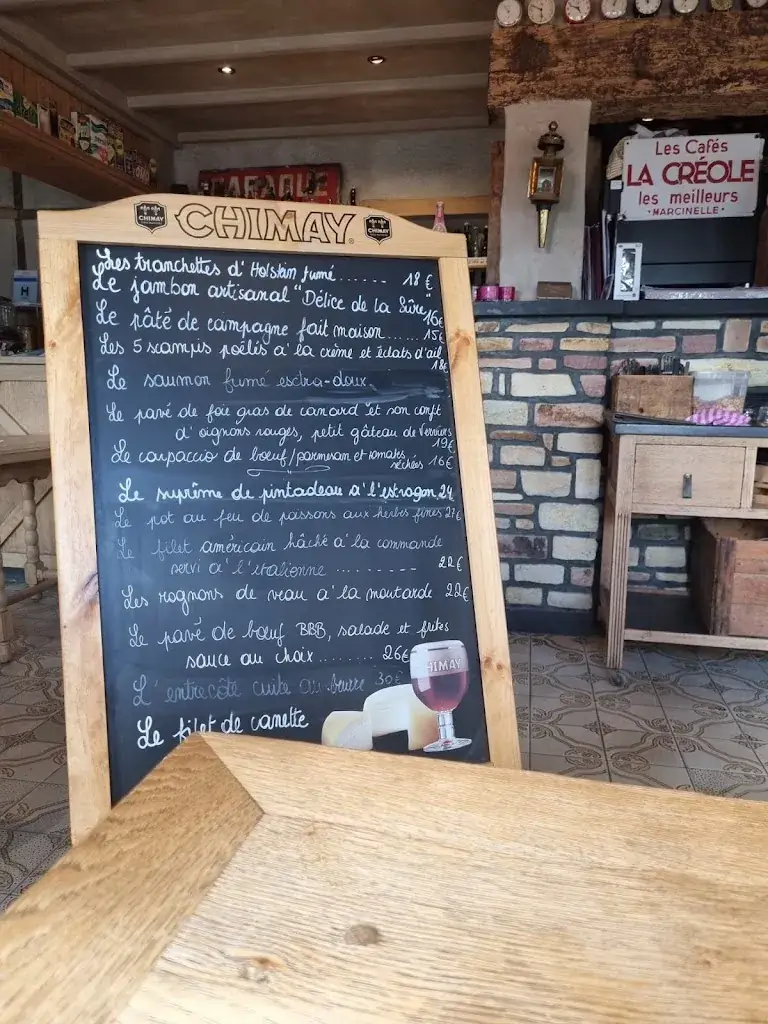 Les Cafés
LA CRÉOLE
les meilleurs
MARCINELLE
CHIMAY
CHIMAY
CHIMAY
Les tranchettes d'Holstein fumé....... 18 €
Le jambon artisanal "Délice de la Sûre" 16€
Le pâté de campagne fait maison...... 15€
Les 5 scampis poêlés à la crème et éclats d'ail 18€
Le saumon fumé extra-doux
Le pavé de foie gras de canard et son confit
d'oignons rouges, petit gâteau de Verviers 19€
Le carpaccio de bœuf/parmesan et tomates séchées 16€
Le suprême de pintadeau à l'estragon 24
Le pot au feu de poissons aux herbes fines 27€
Le filet américain hâché à la commande
servi à l'italienne ......... 22€
Les rognons de veau à la moutarde 22€
Le pavé de bœuf BBB, salade et frites
sauce au choix........ 26€
L'entrecôte cuite au beurre 30€
Le filet de canette
CHIMAY